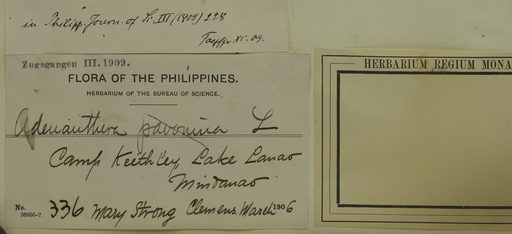 in Philipp. Journ. of Sc. III (1908) 228
Toepffer XI. 09.
Zugegangen III. 1909.
FLORA OF THE PHILIPPINES.
HERBARIUM OF THE BUREAU OF SCIENCE.
Adenanthera pavonina L
Camp Keithley, Lake Lanao
Mindanao
No. 336 Mary Strong Clemens. March 1906
HERBARIUM REGIUM MONA